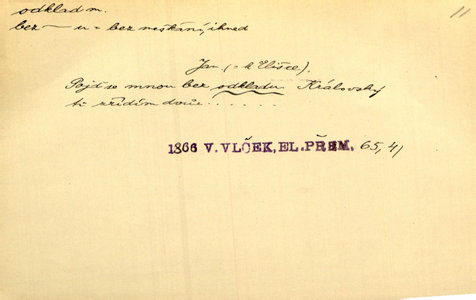 odklad m.
11
bez — u = bez meškání, ihned
Jan (= k Elišce).
Pojď se mnou bez odkladu Královský
ti zřídím dvůr......
1866 V. VLČEK, EL. PŘEM. 65, 4)